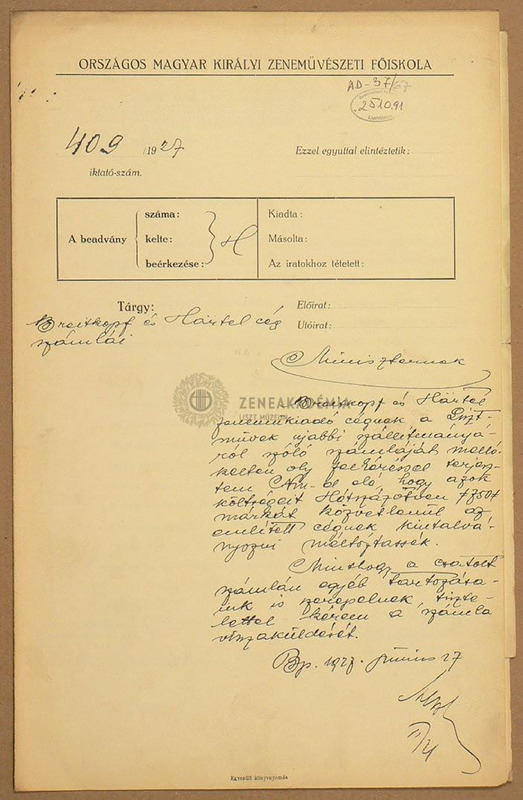 ORSZÁGOS MAGYAR KIRÁLYI ZENEMŰVÉSZETI FŐISKOLA
AD-97/67
251091
409 /1927
iktató-szám.
Ezzel egyuttal elintéztetik:
A beadvány
száma:
kelte:
beérkezése:
Kiadta:
Másolta:
Az iratokhoz tétetett:
Tárgy:
Előirat:
Utóirat:
Breitkopf és Härtel cég
számlái
ZENEAKADÉMIA
LISZT MÚZEUM
Miniszternek
Breitkopf és Härtel
zeneműkiadó cégnek a Liszt-
művek ujabbi szállitmányá-
ról szóló számláját mellé-
kelten oly kéréssel terjesz-
tem elő, hogy azok
költségeit Hétszázötven 750
márkát közvetlenül az
emlitett cégnek kiutalvá-
nyozni méltóztassék.
Minthogy a csatolt
számlán egyéb tartozása-
ink is szerepelnek tiszte-
lettel kérem a számla
visszaküldését.
Bp. 1927. junius 27
Egyesült könyvnyomda